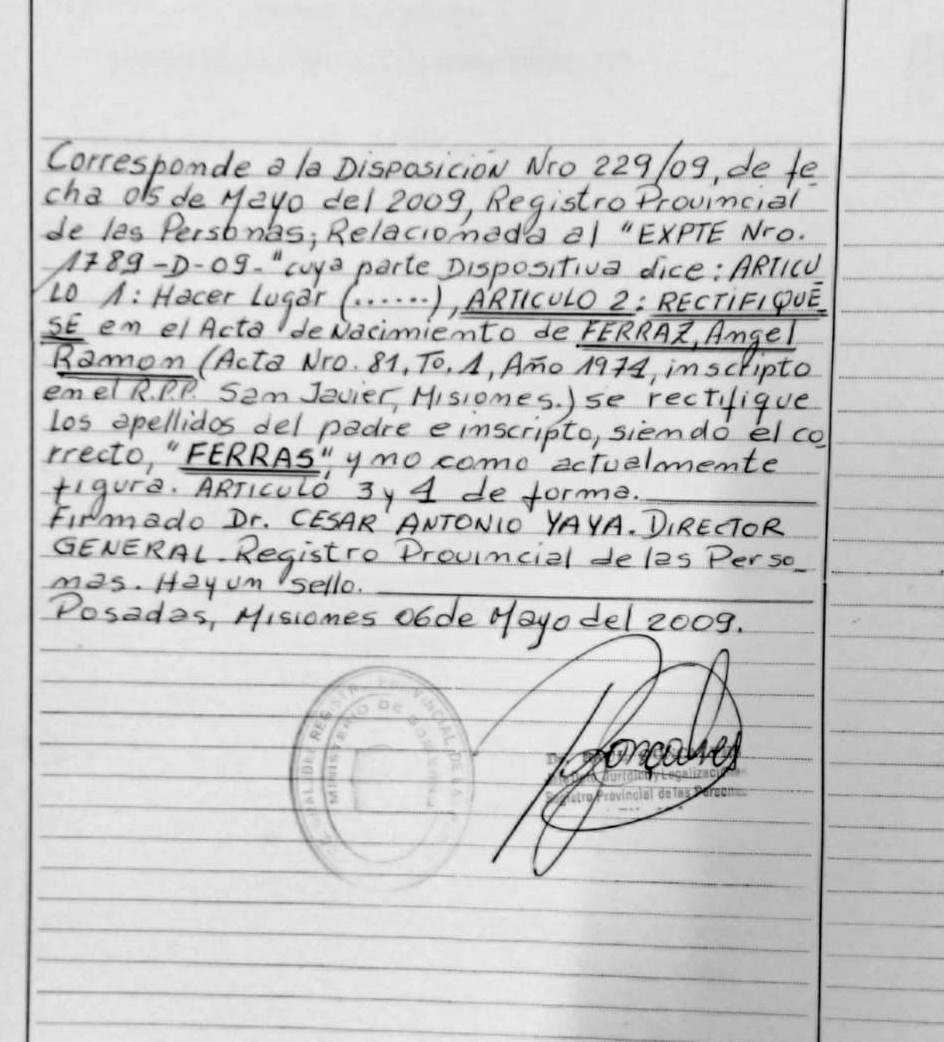 Corresponde a la Disposición Nro 229/09, de fe
cha 05 de Mayo del 2009, Registro Provincial
de las Personas; Relacionada al "EXPTE Nro.
1789-D-09-" cuya parte Dispositiva dice: ARTICU
LO 1: Hacer Lugar (......), ARTICULO 2: RECTIFIQUE
SE en el Acta de Nacimiento de FERRAZ, Angel
Ramon (Acta Nro. 81, To. 1, Año 1974, inscripto
en el R.P.P. San Javier, Misiones.) se rectifique
los apellidos del padre e inscripto, siendo el co_
rrecto, "FERRAS", y no como actualmente
figura. ARTICULO 3 y 4 de forma.
Firmado Dr. CESAR ANTONIO YAYA. DIRECTOR
GENERAL. Registro Provincial de las Perso_
nas. Hay un sello.
Posadas, Misiones 06 de Mayo del 2009.
MINISTERIO DE GOBIERNO
Jurídico y Legalizaciones
Registro Provincial de las Personas